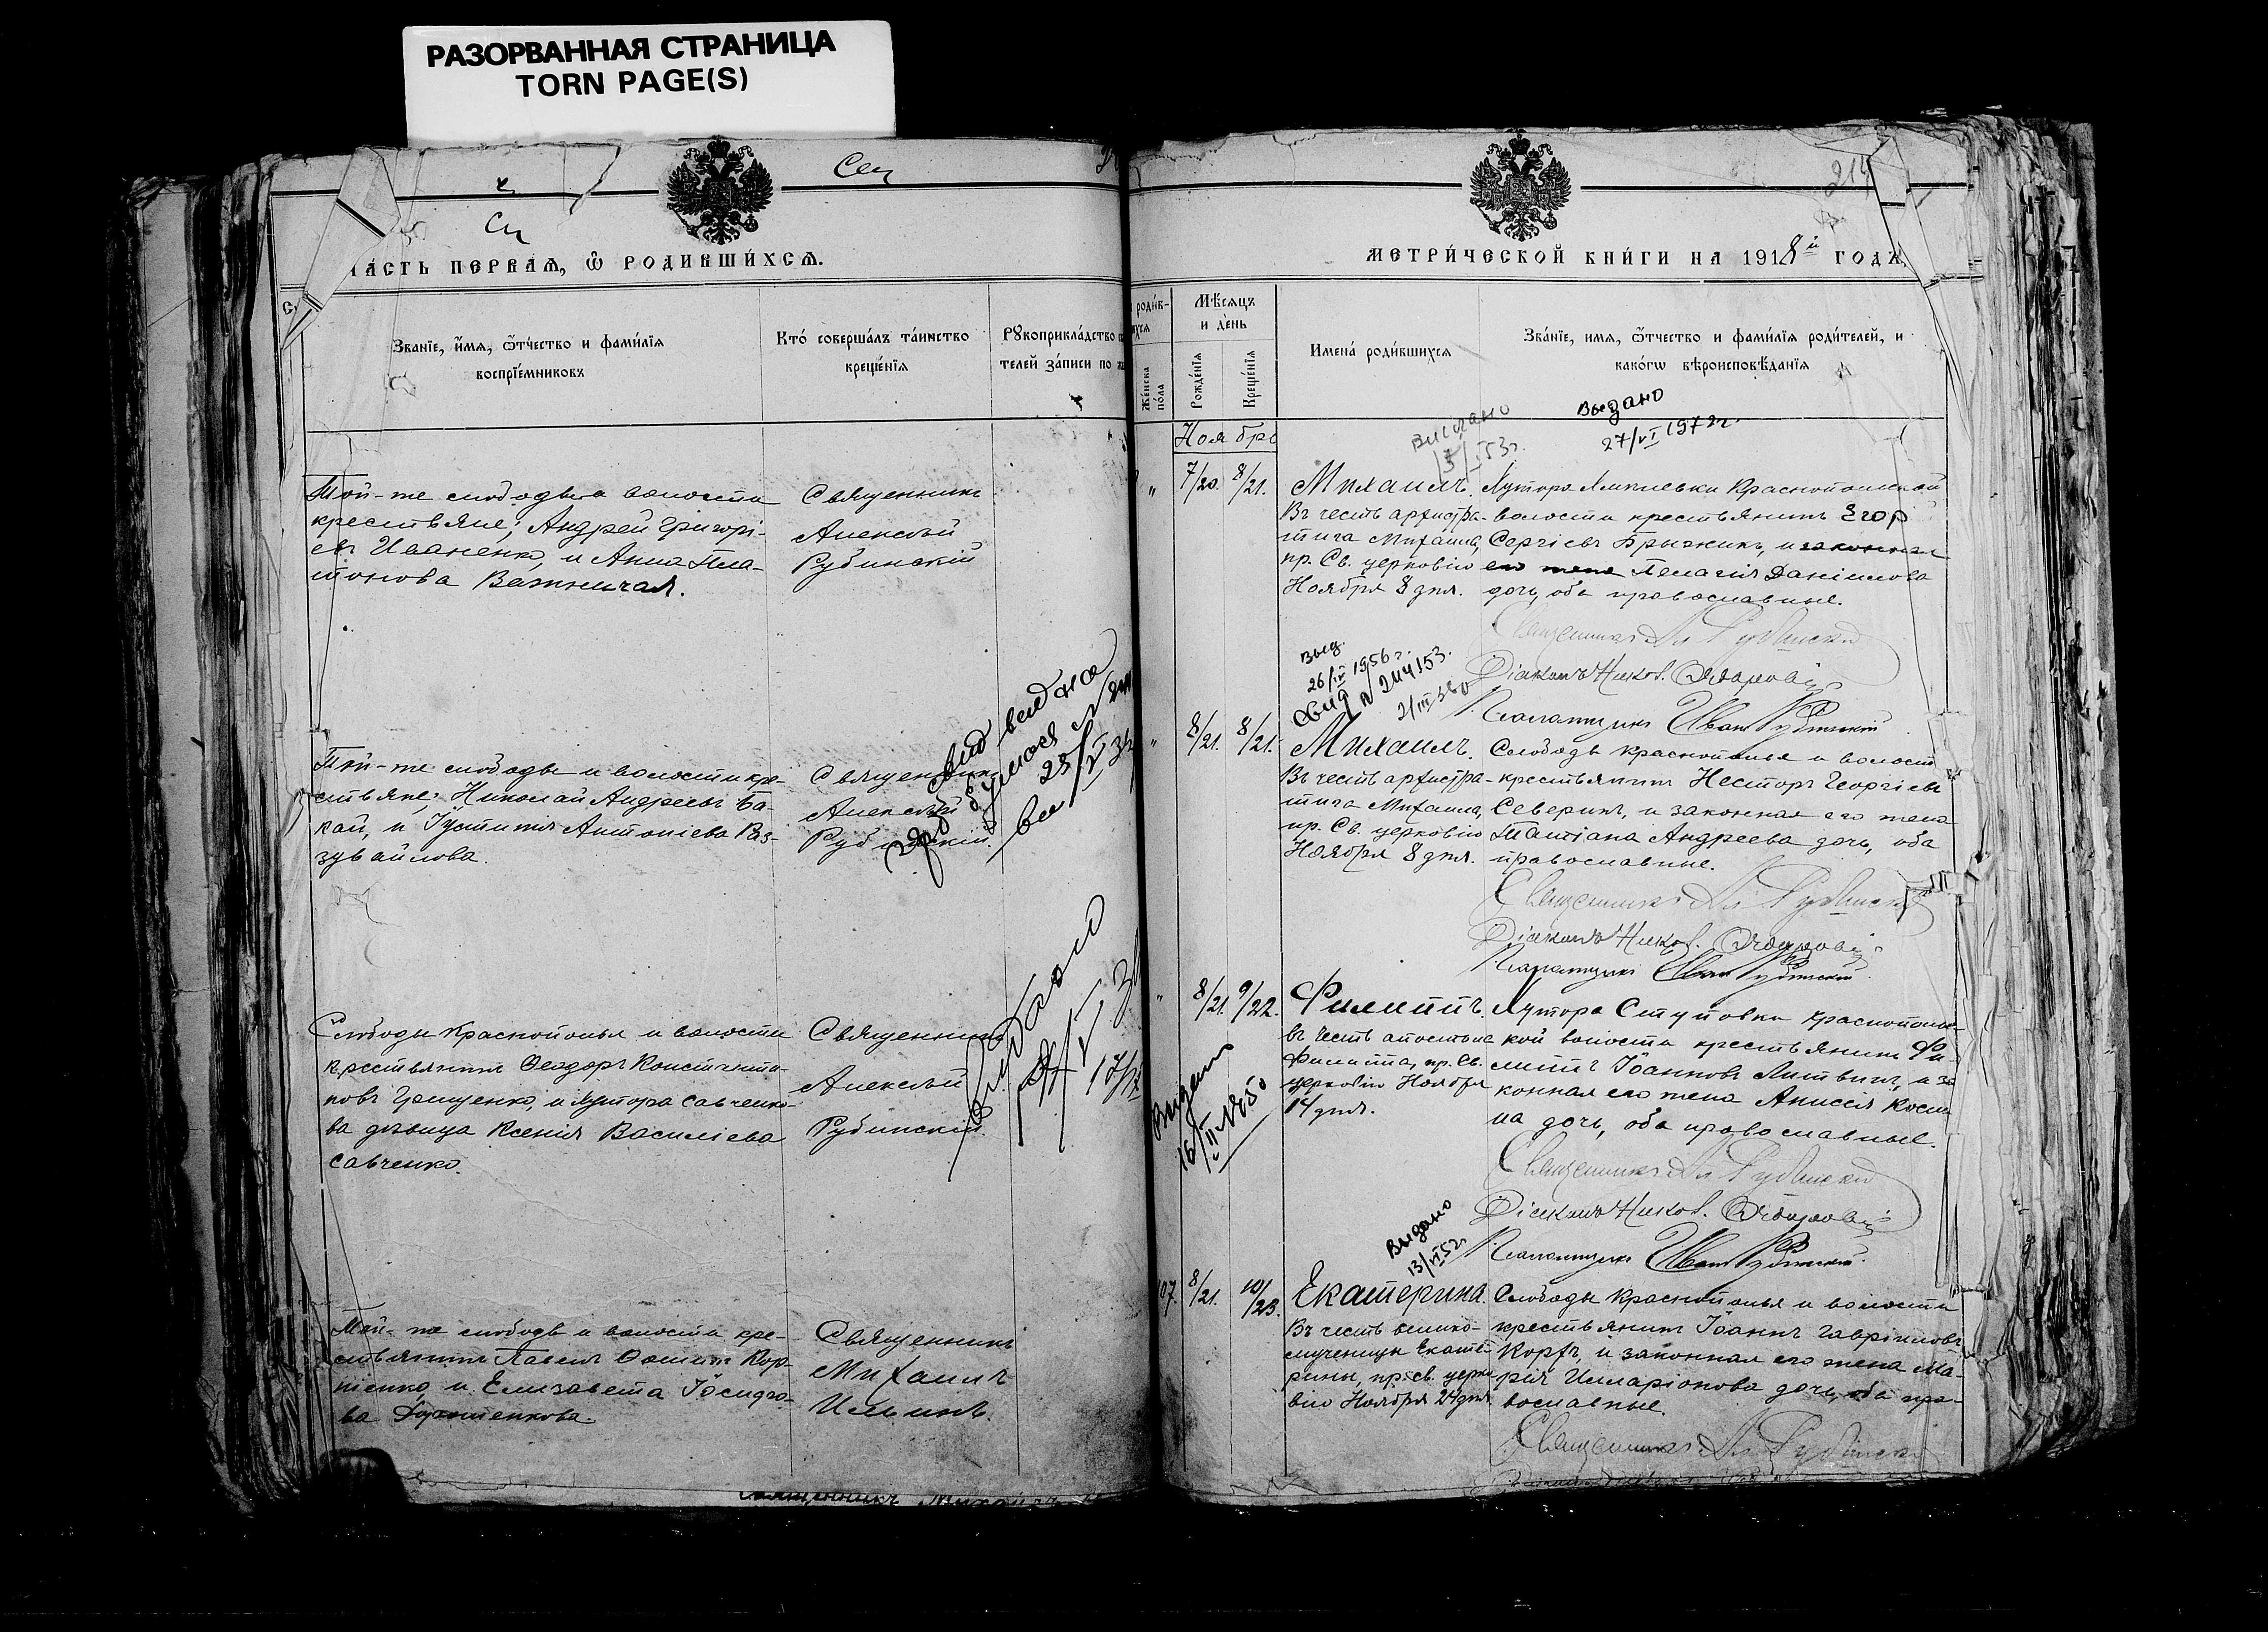 РАЗОРВАННАЯ СТРАНИЦА
TORN PAGE(S)
Сен
Сп
ЧА́СТЬ ПЕРВАѦ, Ѡ҆ РОДИ́ВШИХСѦ.
Зва́нїе, и҆́мѧ, ѻ҆́тчество и фами́лїѧ
воспрїе́мниковъ
Кто̀ соверша́лъ та́инство
креще́нїѧ
Рꙋкоприкла́дство
телей за́писи по
Той-же слободы и волости
крестьяне: Андрей Григорі-
евъ Иваненко, и Анна Пла-
тонова Важничая.
Священникъ
Алексѣй
Рубинскій
Той-же слободы и волости кре-
стьяне: Николай Андреевъ Ба-
кай, и Іустинія Антоніева Раз-
зувайлова.
Священникъ
Алексѣй
Рубинскій.
Слободы Краснополья и волости
крестьянинъ Ѳеодоръ Константи-
новъ Грищенко, и хутора Савченко-
ва дѣвица Ксенія Василіева
Савченко.
Священникъ
Алексѣй
Рубинскій.
Той-же слободы и волости кре-
стьянинъ Павелъ Ѳоминъ Кор-
ніенко, и Елизавета Ісидо-
ва Дорошенкова.
Священникъ
Михаилъ
Ильинъ.
214
МЕТРИ́ЧЕСКОЙ КНИ́ГИ НА 1918й ГОДЪ,
роди́в-
Мѣ́сѧцъ
и де́нь
Же́нска
по́ла
Рожде́нїѧ
Креще́нїѧ
Имена̀ роди́вшихсѧ
Зва́нїе, и҆́мѧ, ѻ҆́тчество и фами́лїѧ роди́телей, и
како́гѡ вѣроисповѣ́данїѧ
Выдано
27/VI 1972г.
Ноябрь
7/20. 8/21.
Михаилъ.
Въ честь архистра-
тига Михаила,
пр. Св. церковію
Ноября 8 дня.
Хутора Краснопольской
волости крестьянинъ Егор
Сергіевъ Брызжикъ, и законная
его жена Пелагія Даніилова
дочь, оба православные.
Священникъ Ал Рубинскій
Діаконъ Никол.
Псаломщикъ Иван Рубинскій
Выд.
26/IV 1956г.
8/21. 8/21.
Михаилъ.
Въ честь архистра-
тига Михаила,
пр. Св. церковію
Ноября 8 дня.
Слободы Краснополья и волости
крестьянинъ Несторъ Георгіевъ
Северинъ, и законная его жена
Татіана Андреева дочь, оба
православные.
Священникъ Ал Рубинскій
Діаконъ Никол.
Псаломщикъ Иван Рубинскій
8/21. 9/22.
Филиппъ.
въ честь апостола
Филиппа, пр. Св.
церковію Ноября
14 дня.
Хутора Ступовки Краснополь-
кой волости крестьянинъ Фи-
липпъ Іоанновъ Литвинъ, и за
конная его жена Анисія Косми
на дочь, оба православные.
Священникъ Ал Рубинскій
Діаконъ Никол.
Псаломщикъ Иван Рубинскій
Выдано
13/VI 52г
107. 8/21. 10/23.
Екатерина.
Въ честь велико-
мученицы Екате-
рины, пр. св. церко
вію Ноября 24 дня.
Слободы Краснополья и волости
крестьянинъ Іоаннъ Гавріиловъ
Корхъ, и законная его жена Ма-
рія Иларіонова дочь, оба пра-
вославные.
Священникъ Ал Рубинскій